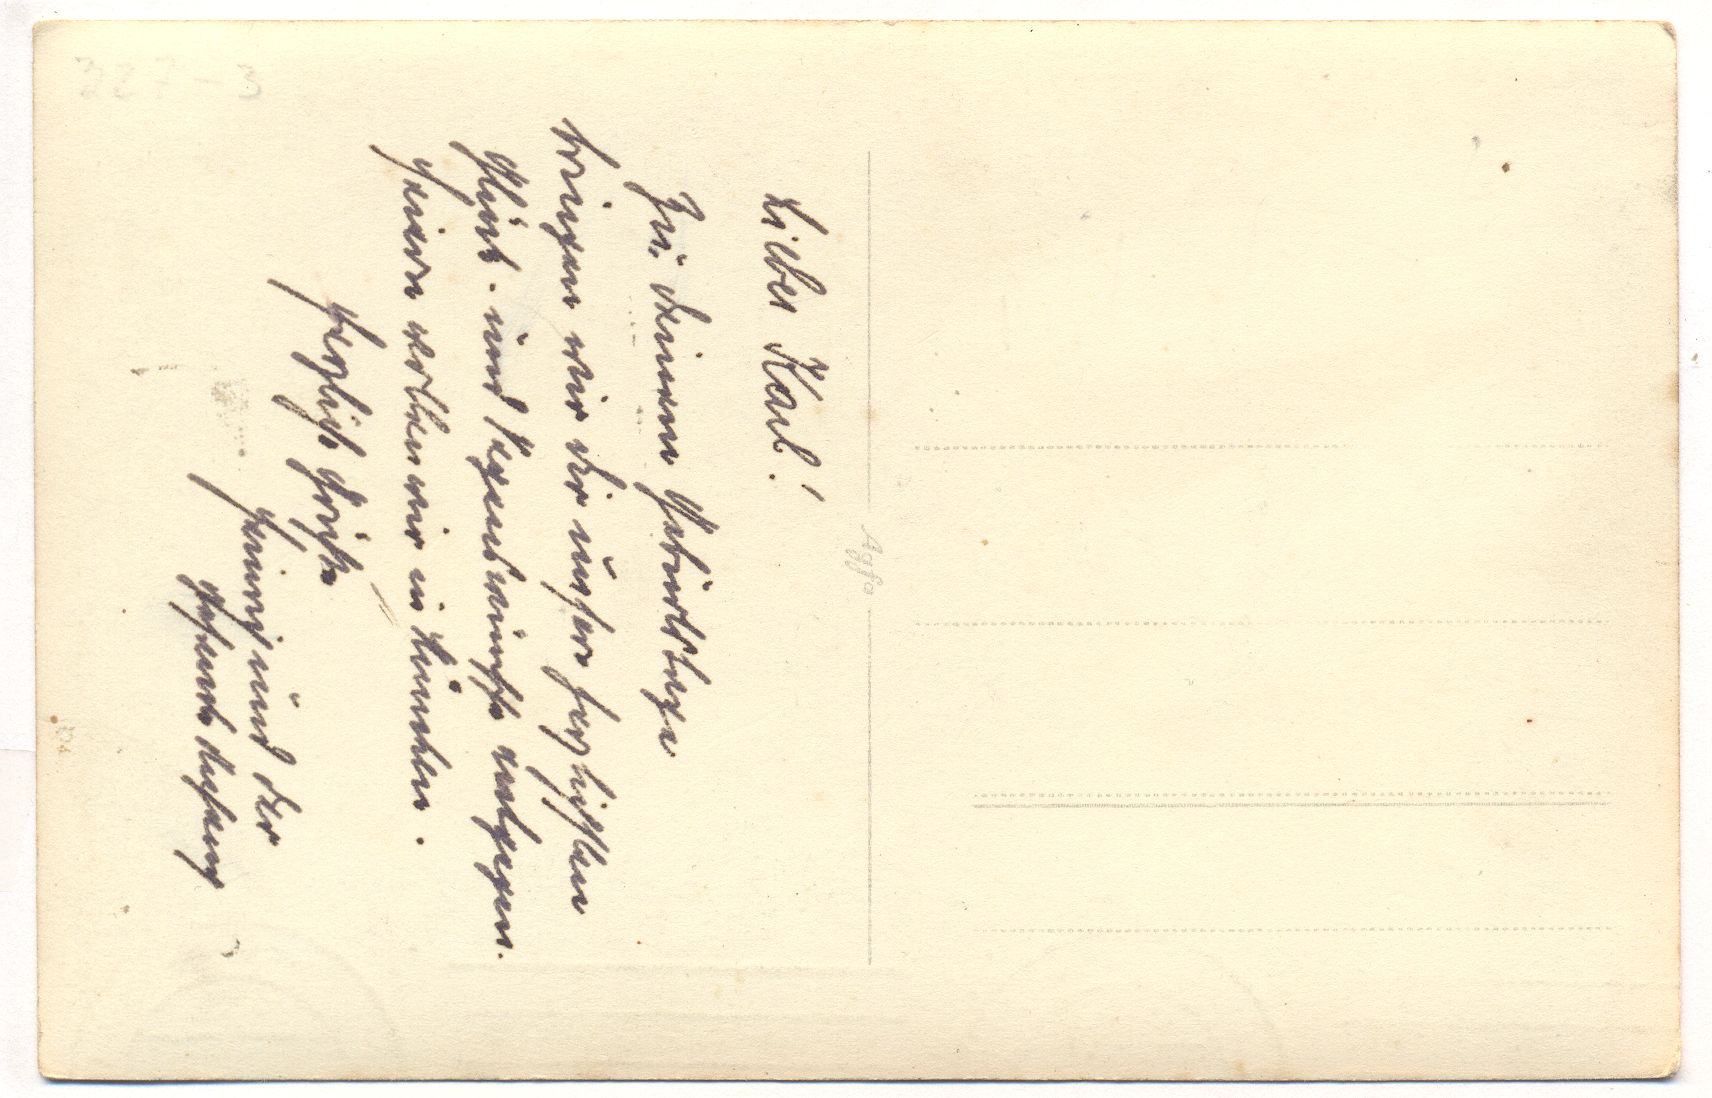 327-3
Lieber Karl!
Zu deinem Geburtstage
bringen wir dir unsere herzlichsten
Glück- und Segenswünsche entgegen.
Feiern wollen wir in München.
Herzliche Grüße
und der
Agfa